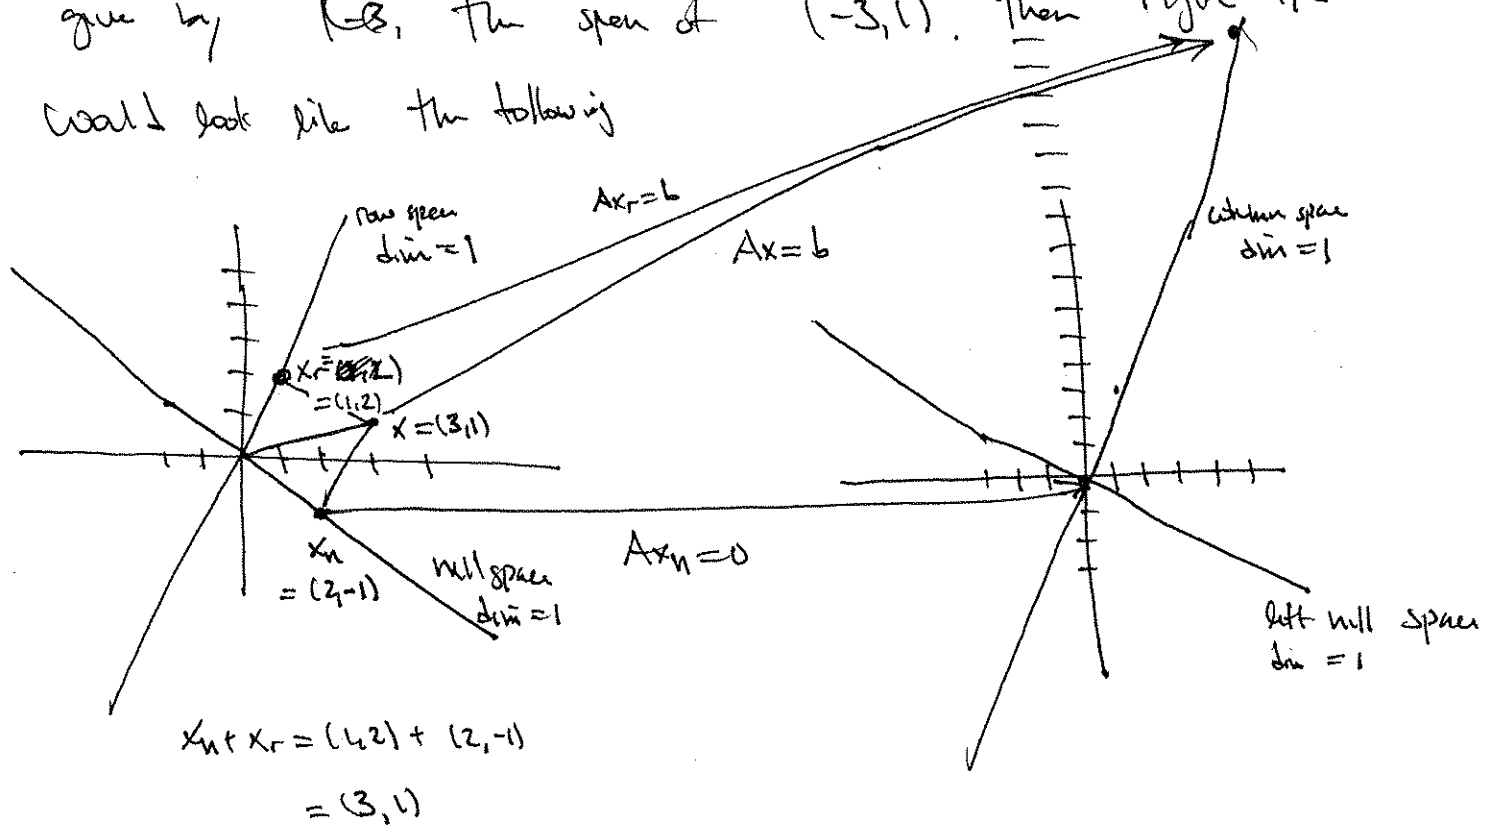 give by the span of (-3,1). Then
would look like the following
Axr=b
row space
dim=1
column space
dim=1
Ax=b
xr=
=(1,2)
x=(3,1)
xn
=(2,-1)
null space
dim=1
Axn=0
left null space
dim=1
xn+xr=(1,2)+(2,-1)
=(3,1)